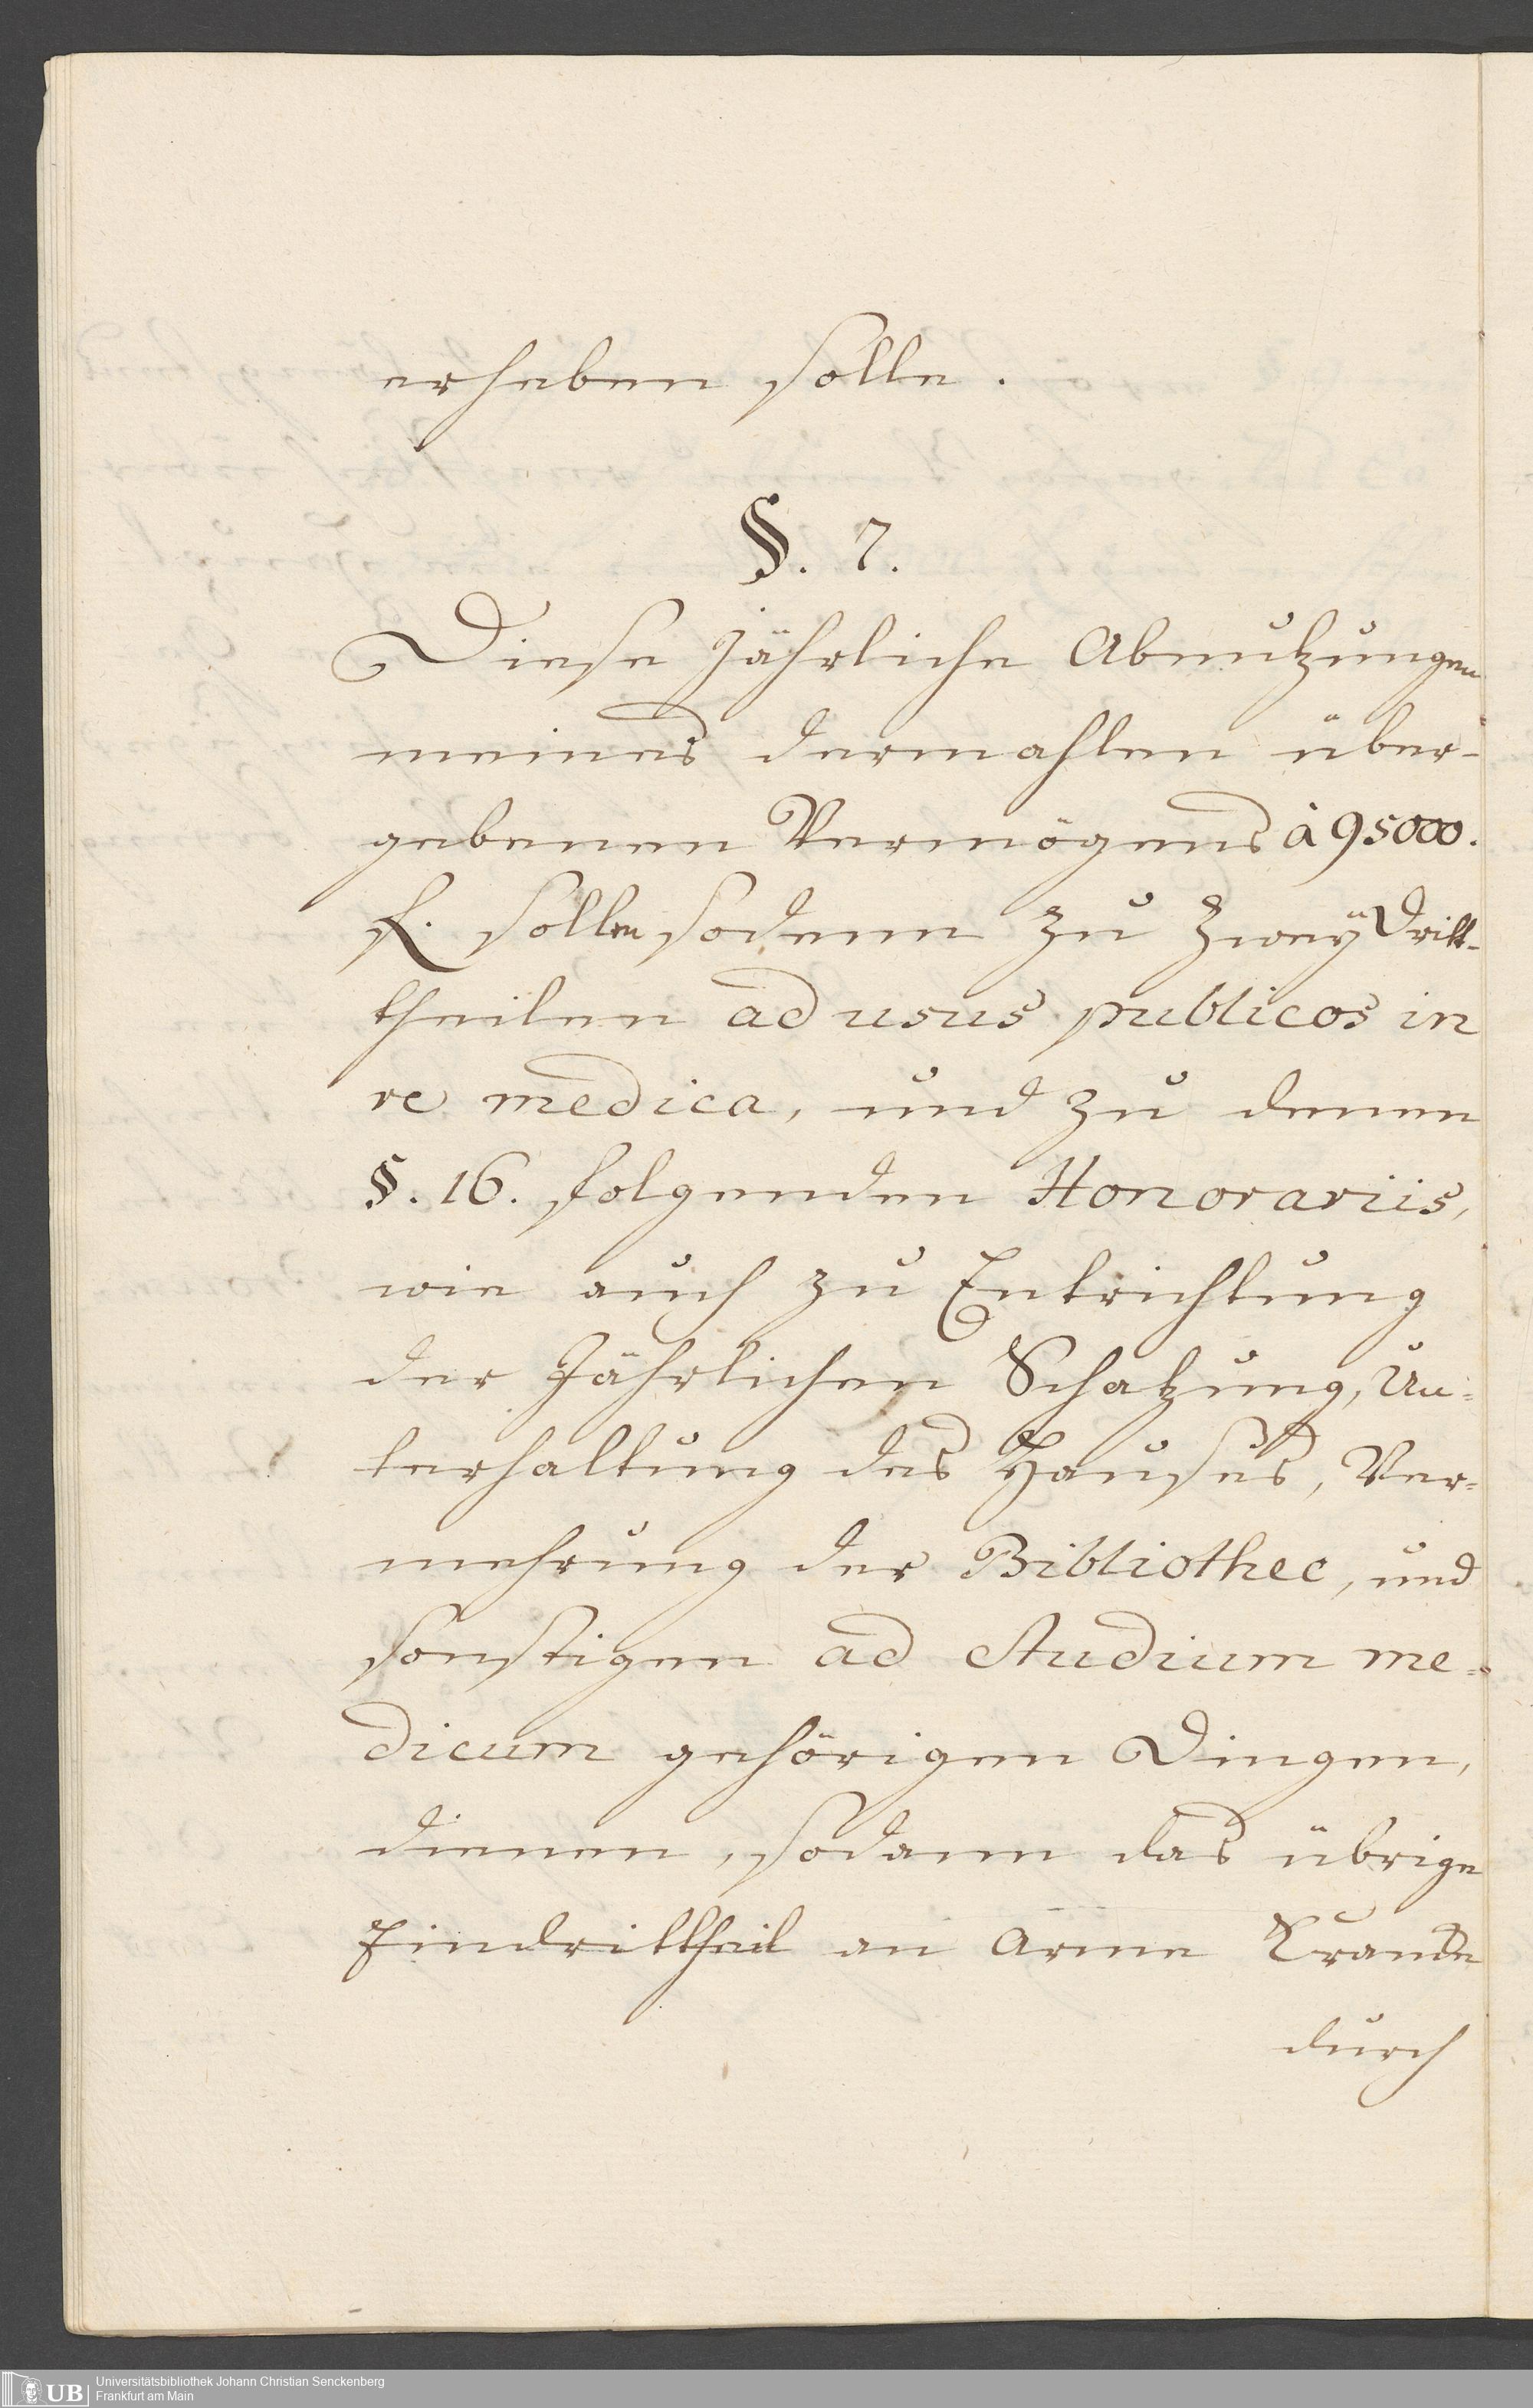 erheben solle.
§. 7.
Diese jährliche Abnutzungen
meines dermahlen über-
gebenen Vermögens à 95000.
f. sollen sodann zu Zweÿ Dritt-
theilen ad usus publicos in
re medica, und zu denen
§. 16. folgenden Honorariis,
wie auch zu Entrichtung
der Jährlichen Schatzung, Un-
terhaltung des Hauses, Ver-
mehrung der Bibliothec, und
sonstigen ad Studium me-
dicum gehörigen Dingen,
dienen, sodann das übrige
Eindrittheil an Arme Krancke
durch
UB
Universitätsbibliothek Johann Christian Senckenberg
Frankfurt am Main